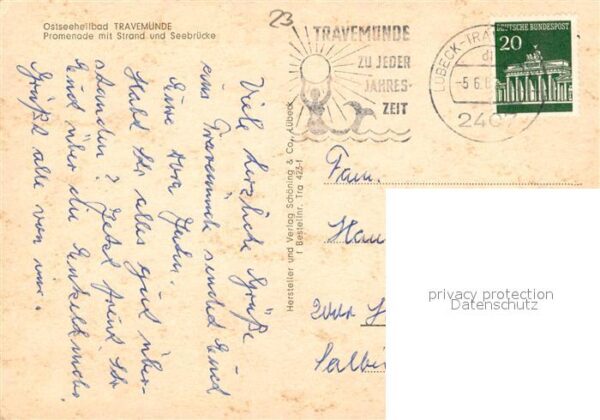 Ostseeheilbad TRAVEMÜNDE
Promenade mit Strand und Seebrücke
23
TRAVEMÜNDE
ZU JEDER
JAHRES-
ZEIT
LÜBECK-TRA
-5.6.6
2407
DEUTSCHE BUNDESPOST
20
Viele herzliche Grüße
aus Travemünde sendet Euch
Eure
Habt Ihr alles gut über-
standen? Jetzt freut Ihr
Euch über die
Grüßt alle von mir.
Hersteller und Verlag Schöning & Co., Lübeck
Bestellnr. Tra 423-f
Fam.
privacy protection
Datenschutz